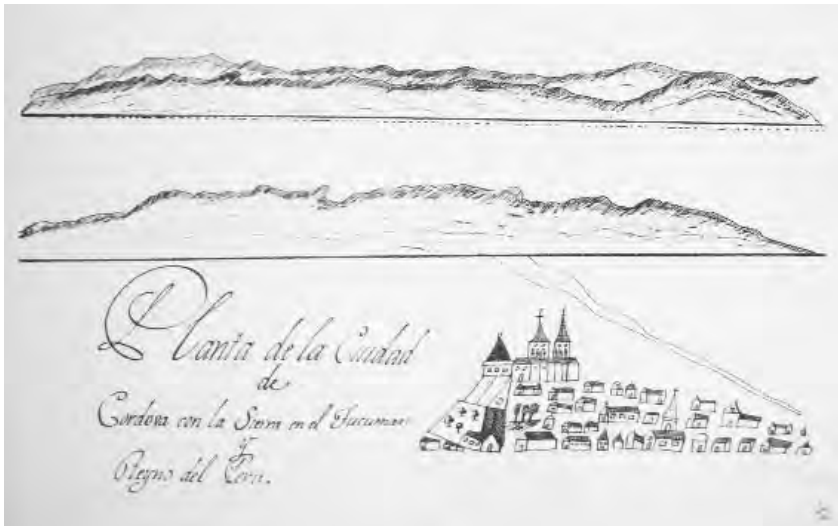 Planta de la Ciudad
de
Cordova con la Sierra en el Tucuman
y
Regno del Peru.